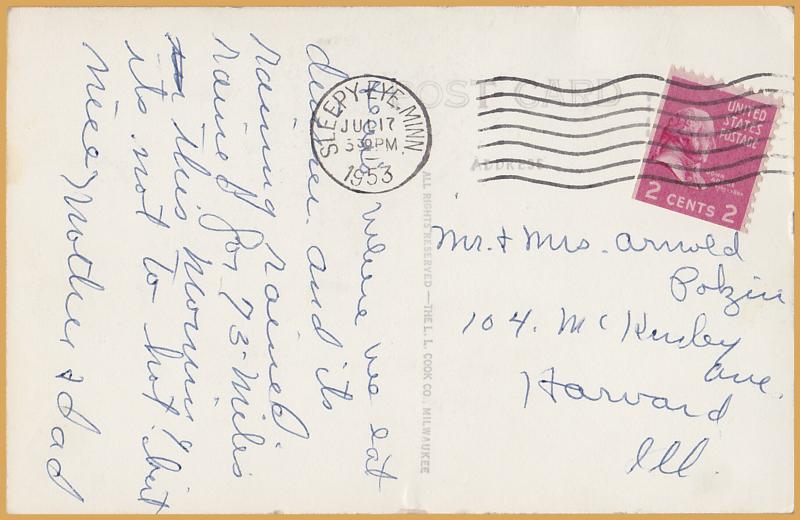 POST CARD
ADDRESS
SLEEPY EYE, MINN.
JUL 17
5 30 PM
1953
UNITED
STATES
POSTAGE
2 CENTS 2
where we eat
dinner. and its
raining rained.
rained for 75 miles
this morning
its not to hot. but
nice. Mother & Dad
ALL RIGHTS RESERVED — THE L. L. COOK CO., MILWAUKEE
Mr. & Mrs. Arnold
Polzin
104. McKinley
Ave.
Harvard
Ill.